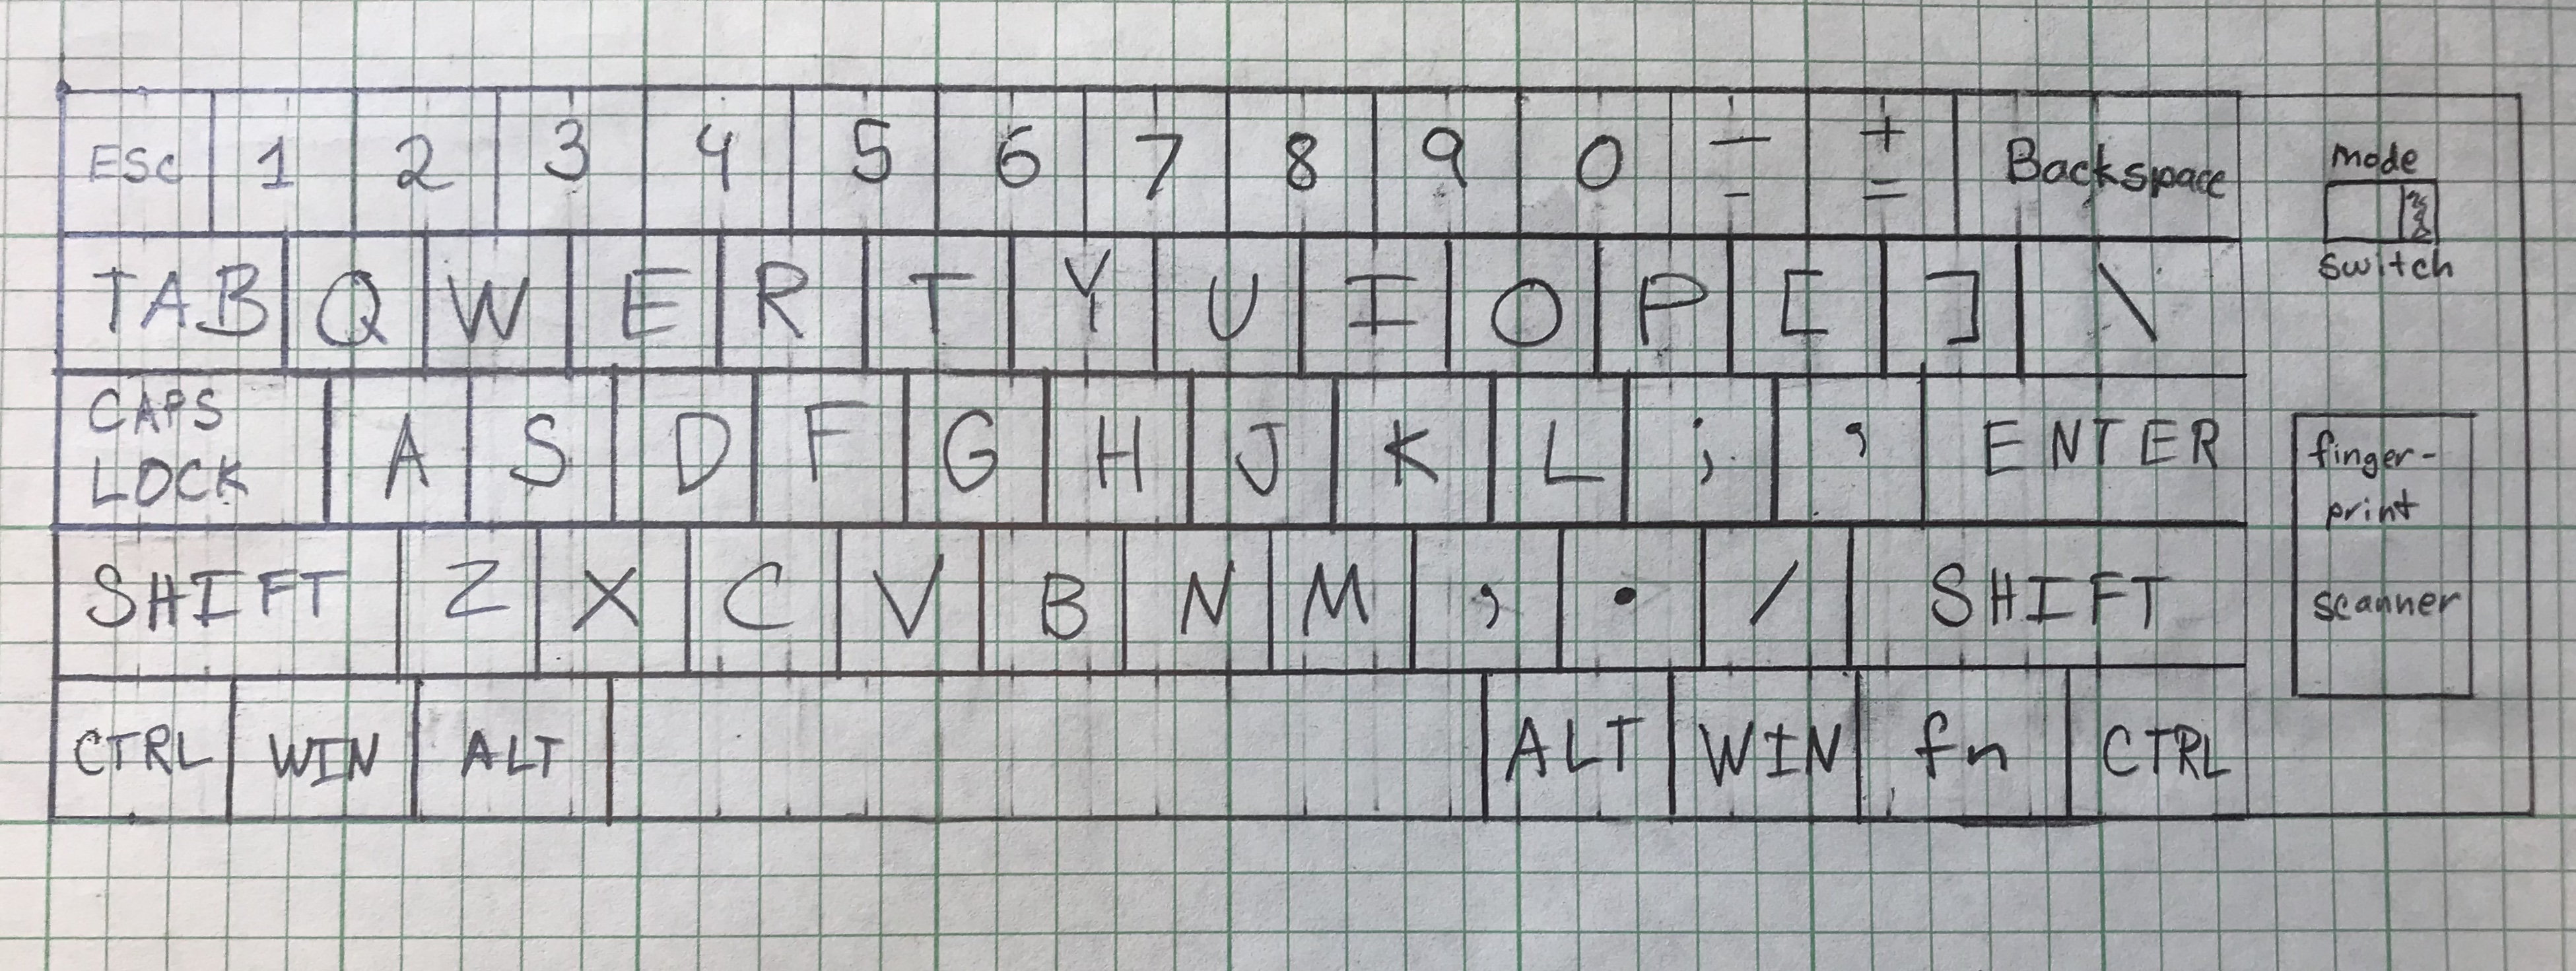 ESC 1 2 3 4 5 6 7 8 9 0 — + Backspace
- =
TAB Q W E R T Y U I O P [ ] \
CAPS
LOCK A S D F G H J K L ; ' ENTER
SHIFT Z X C V B N M , . / SHIFT
CTRL WIN ALT ALT WIN fn CTRL
mode
switch
finger-
print
scanner